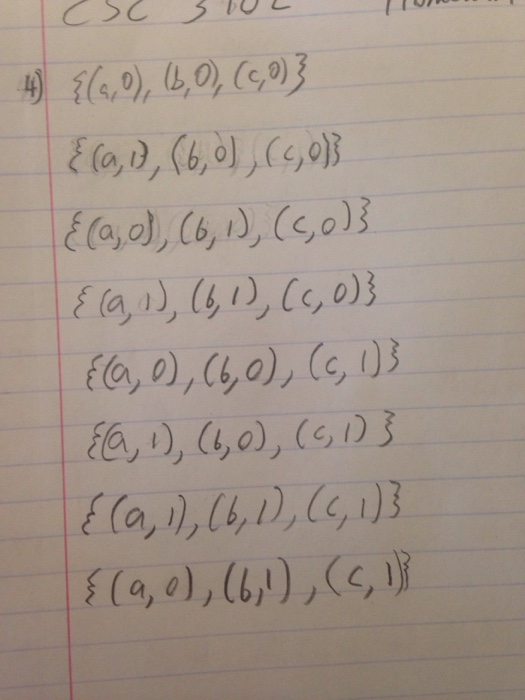 CSC 3102
4) {(a,0), (b,0), (c,0)}
{(a,1), (b,0), (c,0)}
{(a,0), (b,1), (c,0)}
{(a,1), (b,1), (c,0)}
{(a,0), (b,0), (c,1)}
{(a,1), (b,0), (c,1)}
{(a,1), (b,1), (c,1)}
{(a,0), (b,1), (c,1)}